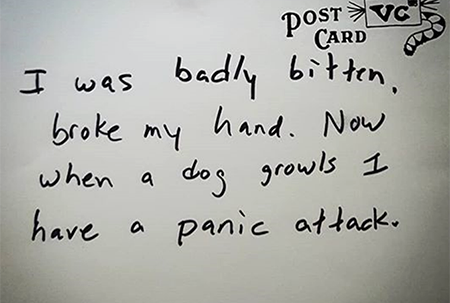 POST VC
CARD
I was badly bitten,
broke my hand. Now
when a dog growls I
have a panic attack.